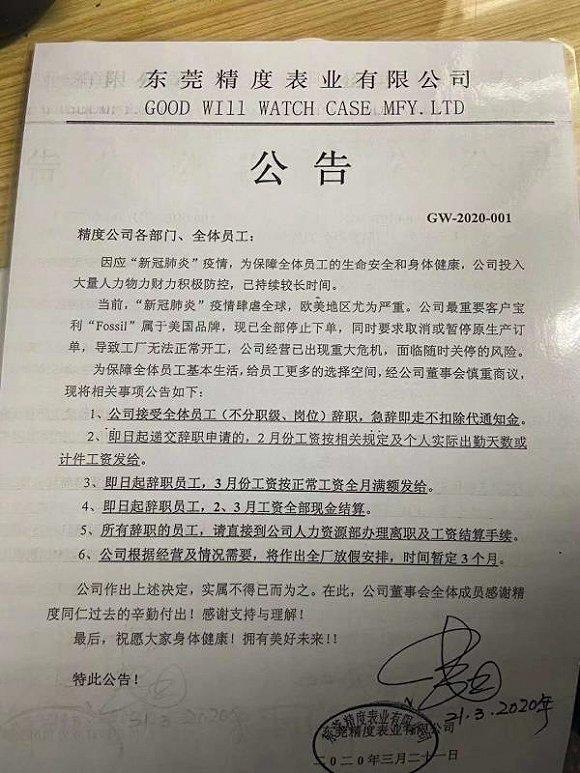 东莞精度表业有限公司
GOOD WIll WATCH CASE MFY.LTD
公 告
GW-2020-001
精度公司各部门、全体员工：
因应“新冠肺炎”疫情，为保障全体员工的生命安全和身体健康，公司投入
大量人力物力财力积极防控，已持续较长时间。
当前，“新冠肺炎”疫情肆虐全球，欧美地区尤为严重。公司最重要客户宝
利“Fossil”属于美国品牌，现已全部停止下单，同时要求取消或暂停原生产订
单，导致工厂无法正常开工，公司经营已出现重大危机，面临随时关停的风险。
为保障全体员工基本生活，给员工更多的选择空间，经公司董事会慎重商议，
现将相关事项公告如下：
1、公司接受全体员工（不分职级、岗位）辞职，急辞即走不扣除代通知金。
2、即日起递交辞职申请的，2月份工资按相关规定及个人实际出勤天数或
计件工资发给。
3、即日起辞职员工，3月份工资按正常工资全月满额发给。
4、即日起辞职员工，2、3月工资全部现金结算。
5、所有辞职的员工，请直接到公司人力资源部办理离职及工资结算手续。
6、公司根据经营及情况需要，将作出全厂放假安排，时间暂定3个月。
公司作出上述决定，实属不得已而为之。在此，公司董事会全体成员感谢精
度同仁过去的辛勤付出！感谢支持与理解！
最后，祝愿大家身体健康！拥有美好未来！！
特此公告！
21.3.2020年
东莞精度表业有限公司
莞精度表业有限公司
二0二0年三月二十一日